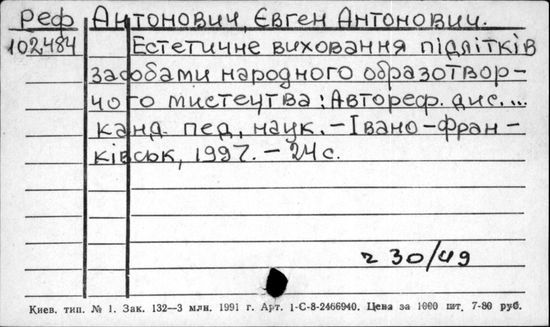 Реф Антонович, Євген Антонович.
102,484 Естетичне виховання підлітків
засобами народного образотвор-
чого мистецтва: Автореф. дис. ...
канд. пед. наук. – Івано-Фран-
ківськ, 1997. – 24 с.
г 30/49
Киев. тип. № 1. Зак. 132—3 млн. 1991 г. Арт. 1-С-8-2466940. Цена за 1000 шт. 7-80 руб.